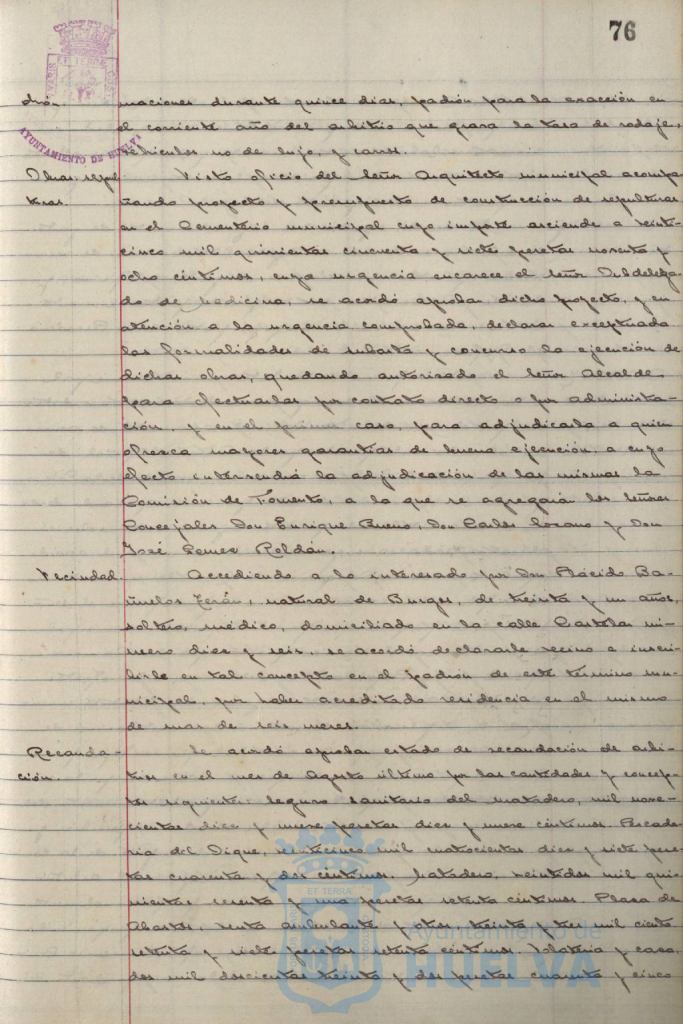 76
AYUNTAMIENTO DE HUELVA
drón.
maciones durante quince dias, padrón para la exacción en
el corriente año del arbitrio que grava la tasa de rodaje,
vehiculos no de lujo, y carros.
Obras: sepul
turas.
Visto oficio del Señor Arquitecto municipal acompa
ñando proyecto y presupuesto de construcción de sepulturas
en el Cementerio municipal cuyo importe asciende a veinti-
cinco mil quinientas cincuenta y siete pesetas noventa y
ocho céntimos, cuya urgencia encarece el Señor Subdelega
do de Medicina, se acordó aprobar dicho proyecto, y en
atención a la urgencia comprobada, declarar exceptuada
las formalidades de subasta y concurso la ejecución de
dichas obras, quedando autorizado el Señor Alcalde
para efectuarlas por contrato directo o por administra-
ción, y en el primer caso, para adjudicarla a quien
ofrezca mayores garantias de buena ejecución, a cuyo
efecto intervendrá la adjudicación de las mismas la
Comisión de Fomento, a la que se agregarán los Señores
Concejales Don Enrique Bueno, Don Carlos Lozano y Don
José Ponce Roldán.
Vecindad.
Accediendo a lo interesado por Don Plácido Ba-
ñuelos Terán, natural de Burgos, de treinta y un años,
soltero, médico, domiciliado en la calle Castelar nú-
mero diez y seis, se acordó declararle vecino e inscri-
birle en tal concepto en el padrón de este término mu-
nicipal, por haber acreditado residencia en el mismo
de mas de seis meses.
Recauda-
ción.
Se acordó aprobar estado de recaudación de arbi-
trios en el mes de Agosto último por las cantidades y concep-
tos siguientes: Seguro sanitario del matadero, mil nove-
cientas diez y nueve pesetas diez y nueve céntimos. Pescade-
ria del Dique, veinticinco mil cuatrocientas diez y siete pese-
tas cuarenta y dos céntimos. Matadero, veintidos mil qui-
nientas sesenta y una pesetas setenta céntimos. Plaza de
Abastos, venta ambulante y otros treinta y tres mil ciento
setenta y siete pesetas setenta céntimos. Volateria y caza,
dos mil doscientas treinta y dos pesetas cuarenta y cinco
Ayuntamiento de
HUELVA